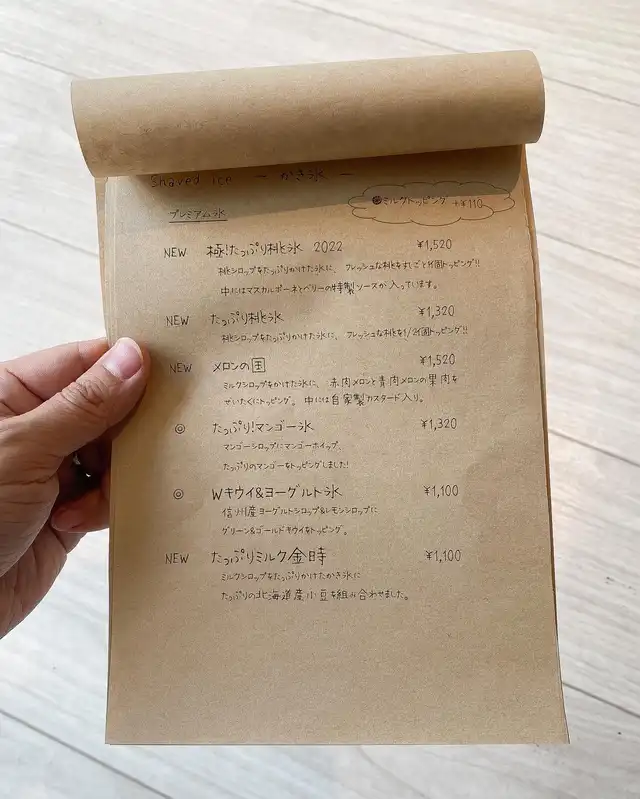 Shaved ice ー かき氷 ー
プレミアム氷
ミルクトッピング +¥110
NEW 極!たっぷり桃氷 2022 ¥1,520
桃シロップをたっぷりかけた氷に、フレッシュな桃をまるごと1個トッピング!!
中にはマスカルポーネとベリーの特製ソースが入っています。
NEW たっぷり桃氷 ¥1,320
桃シロップをたっぷりかけた氷に、フレッシュな桃を1/2個トッピング!!
NEW メロンの国 ¥1,520
ミルクシロップをかけた氷に、赤肉メロンと青肉メロンの果肉を
ぜいたくにトッピング。中には自家製カスタード入り。
◎ たっぷり!マンゴー氷 ¥1,320
マンゴーシロップにマンゴーホイップ、
たっぷりのマンゴーをトッピングしました!
◎ Wキウイ&ヨーグルト氷 ¥1,100
信州産ヨーグルトシロップ&レモンシロップに
グリーン&ゴールドキウイをトッピング。
NEW たっぷりミルク金時 ¥1,100
ミルクシロップをたっぷりかけたかき氷に
たっぷりの北海道産小豆を組み合わせました。